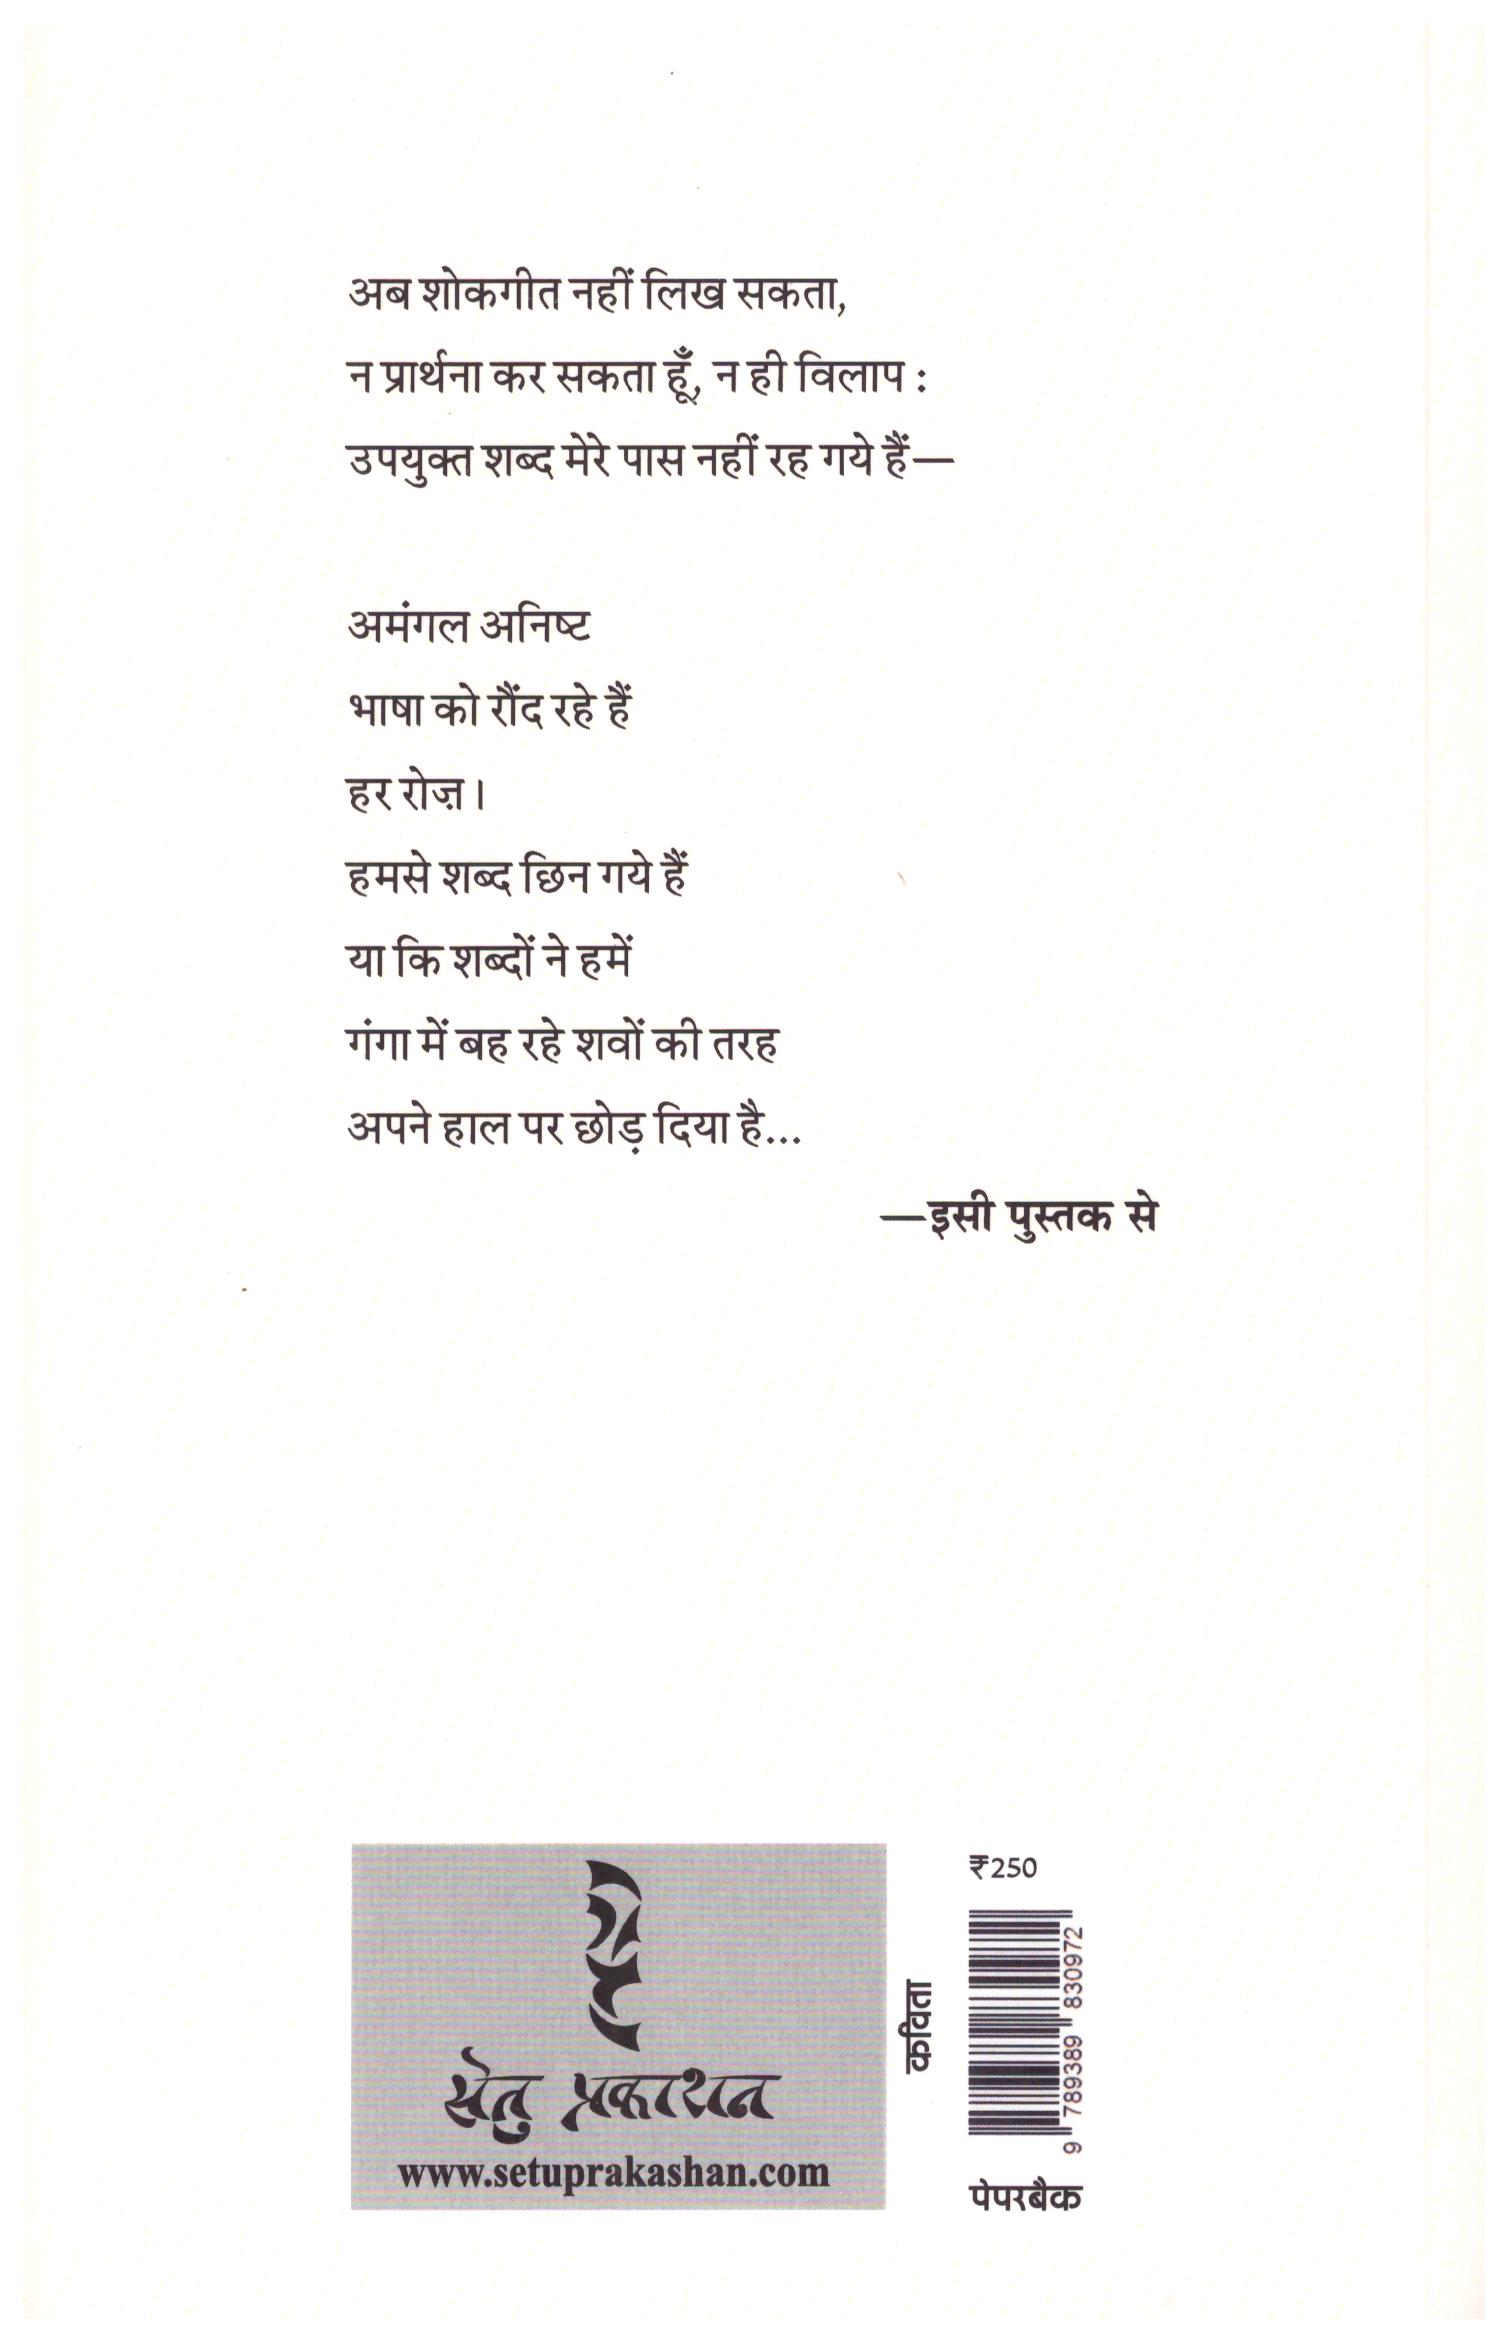 अब शोकगीत नहीं लिख सकता,
न प्रार्थना कर सकता हूँ, न ही विलाप :
उपयुक्त शब्द मेरे पास नहीं रह गये हैं—
अमंगल अनिष्ट
भाषा को रौंद रहे हैं
हर रोज़।
हमसे शब्द छिन गये हैं
या कि शब्दों ने हमें
गंगा में बह रहे शवों की तरह
अपने हाल पर छोड़ दिया है...
—इसी पुस्तक से
सेतु प्रकाशन
www.setuprakashan.com
कविता
₹250
9 789389 830972
पेपरबैक